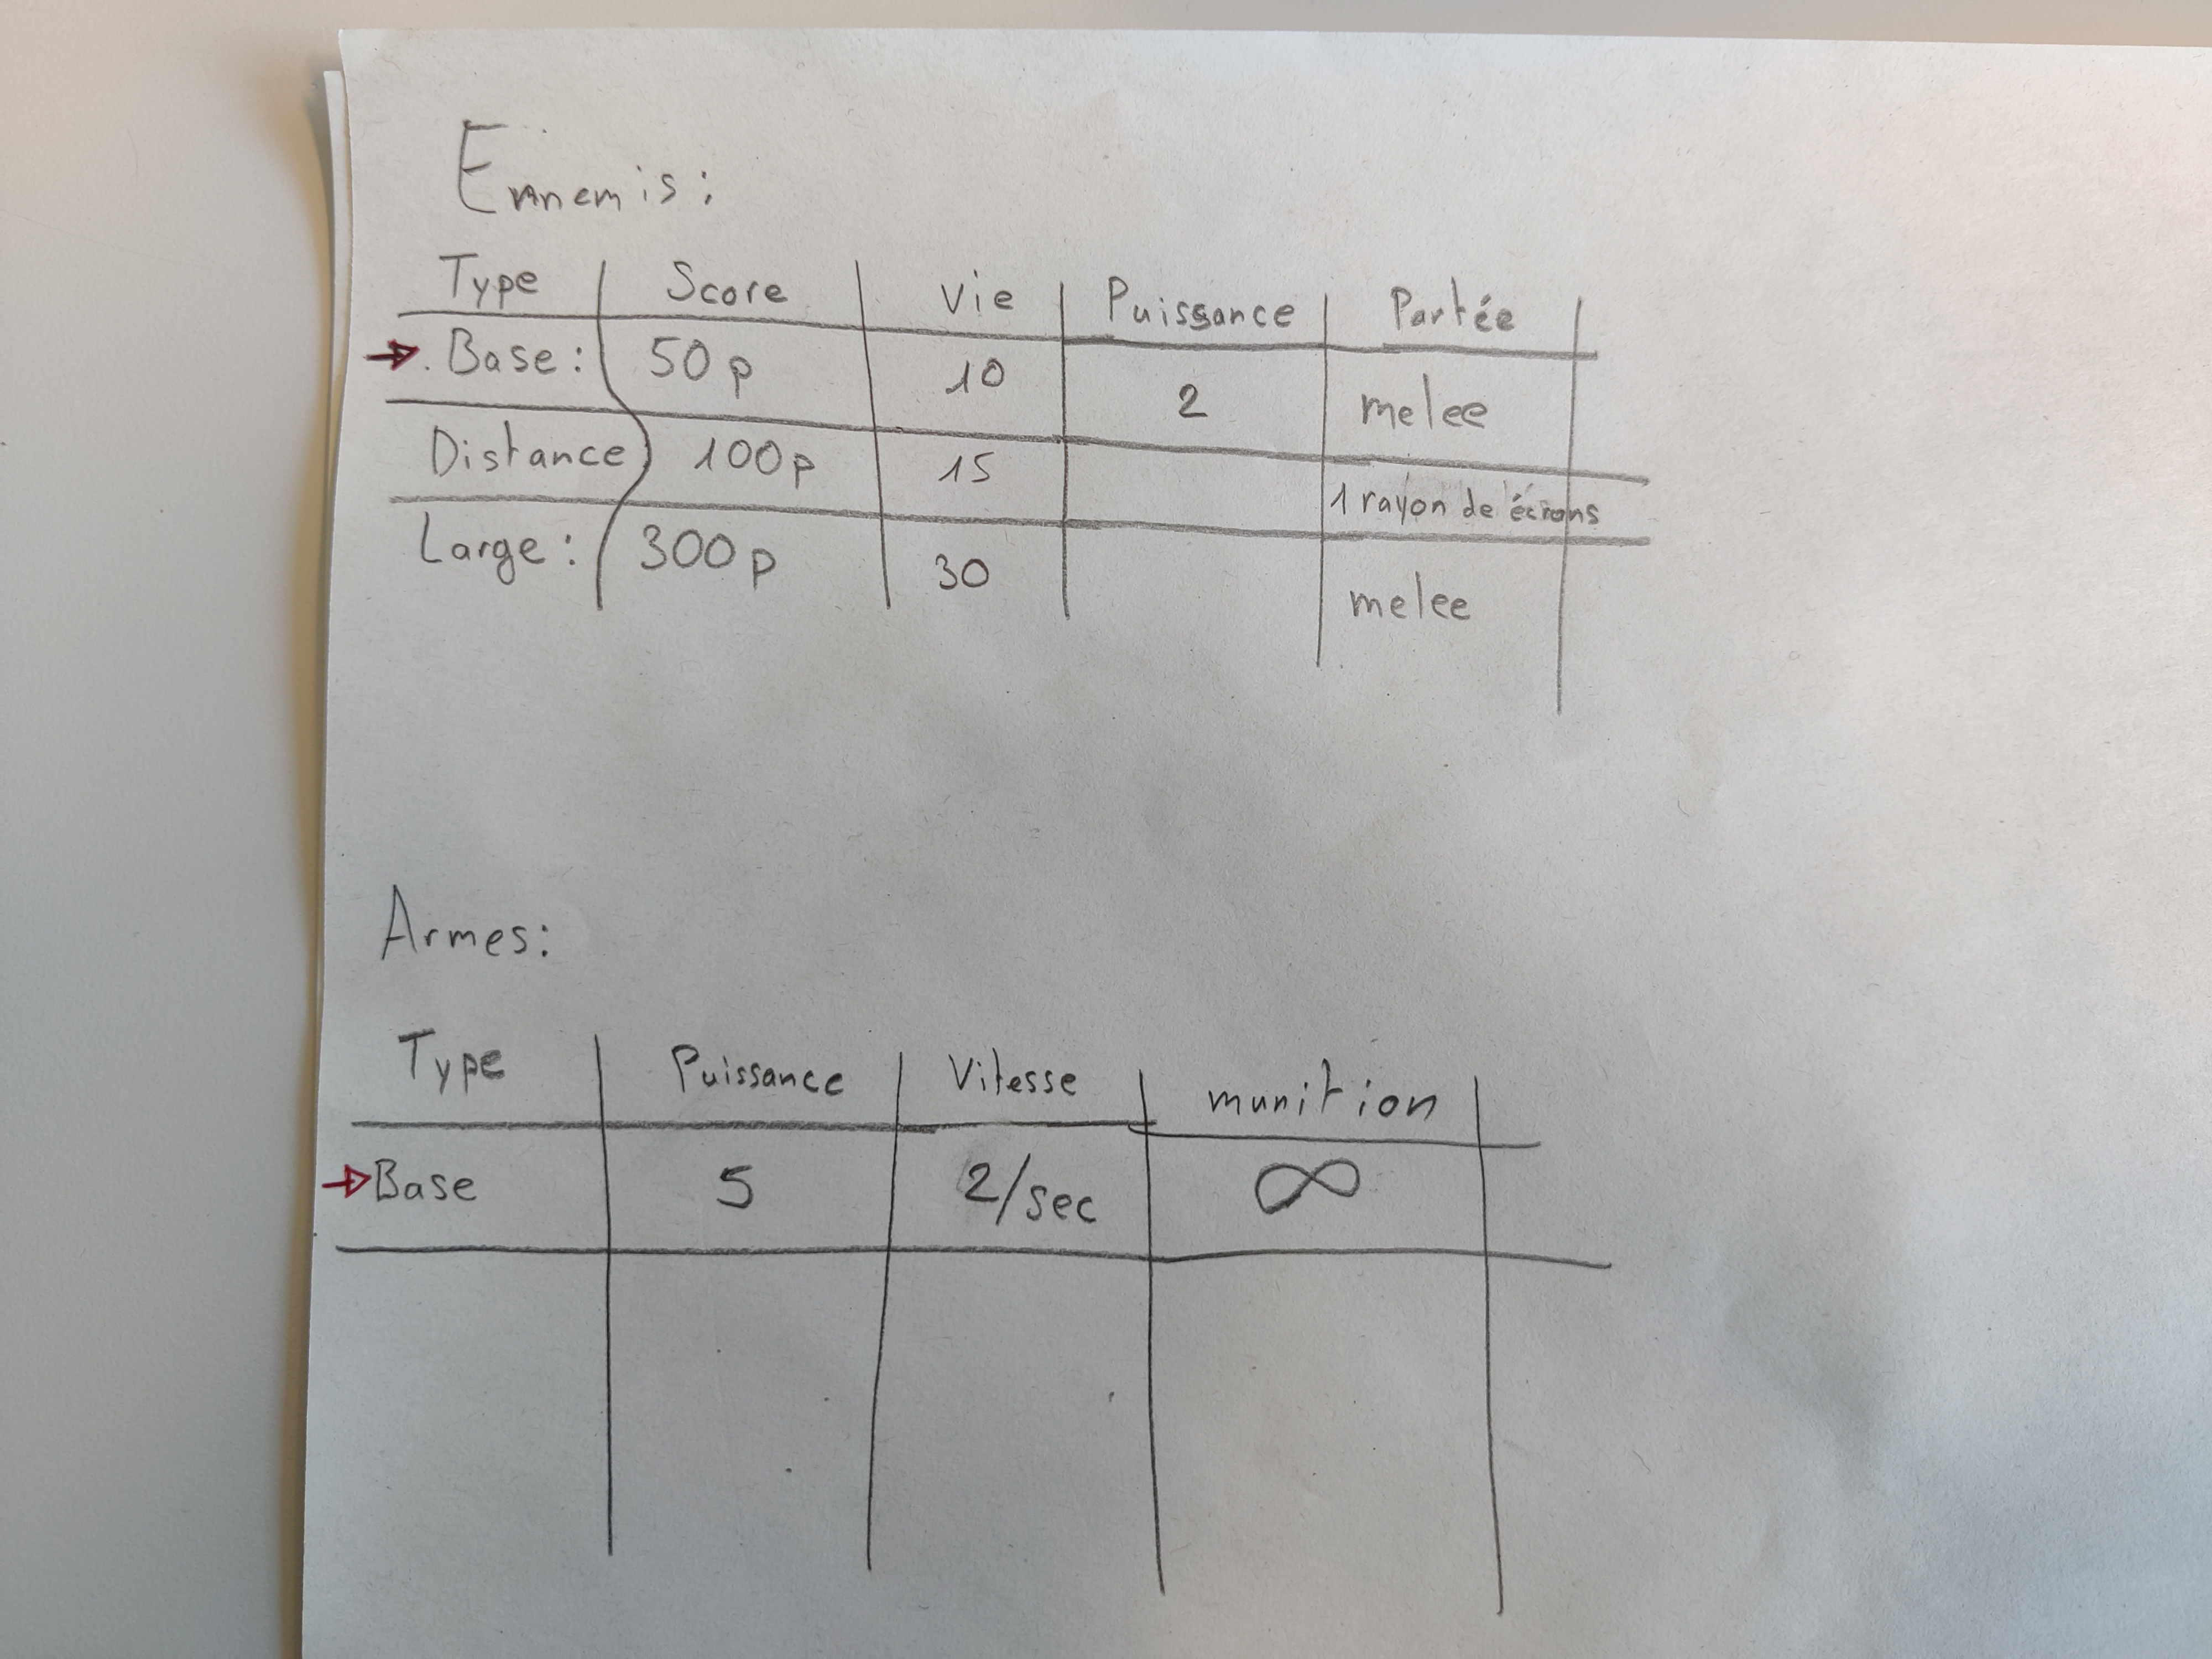 Ennemis :
Type Score Vie Puissance Portée
→ . Base : 50 p 10 2 melee
Distance 100 p 15 1 rayon de écrans
Large : 300 p 30 melee
Armes :
Type Puissance Vitesse munition
→ Base 5 2/sec ∞